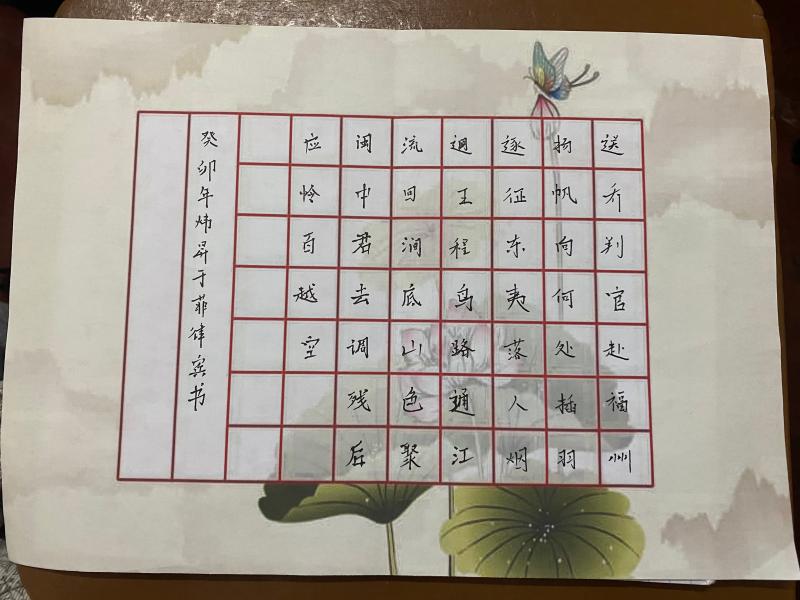 送乔判官赴福州
扬帆向何处插羽
逐征东夷落人烟
迥王程鸟路通江
流回涧底山色聚
闽中君去调残后
应怜百越空
癸卯年炜昇于菲律宾书